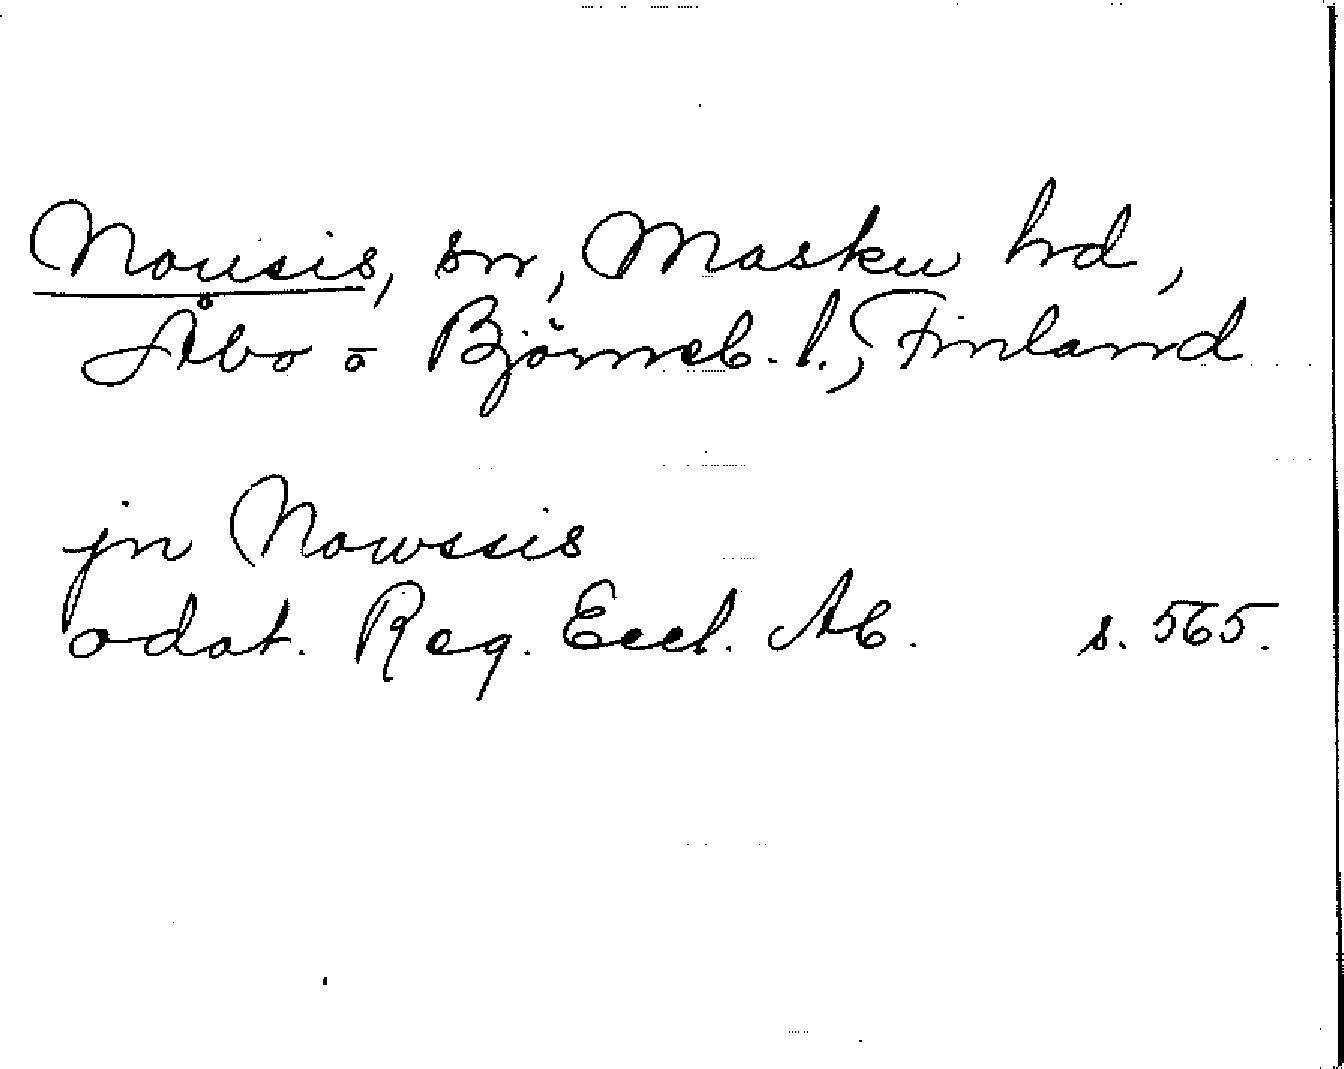 Nousis, sn, Masku hd,
Åbo o Björneb. l., Finland
jn Nowssis
odat. Reg. Eccl. Ab. s. 565.